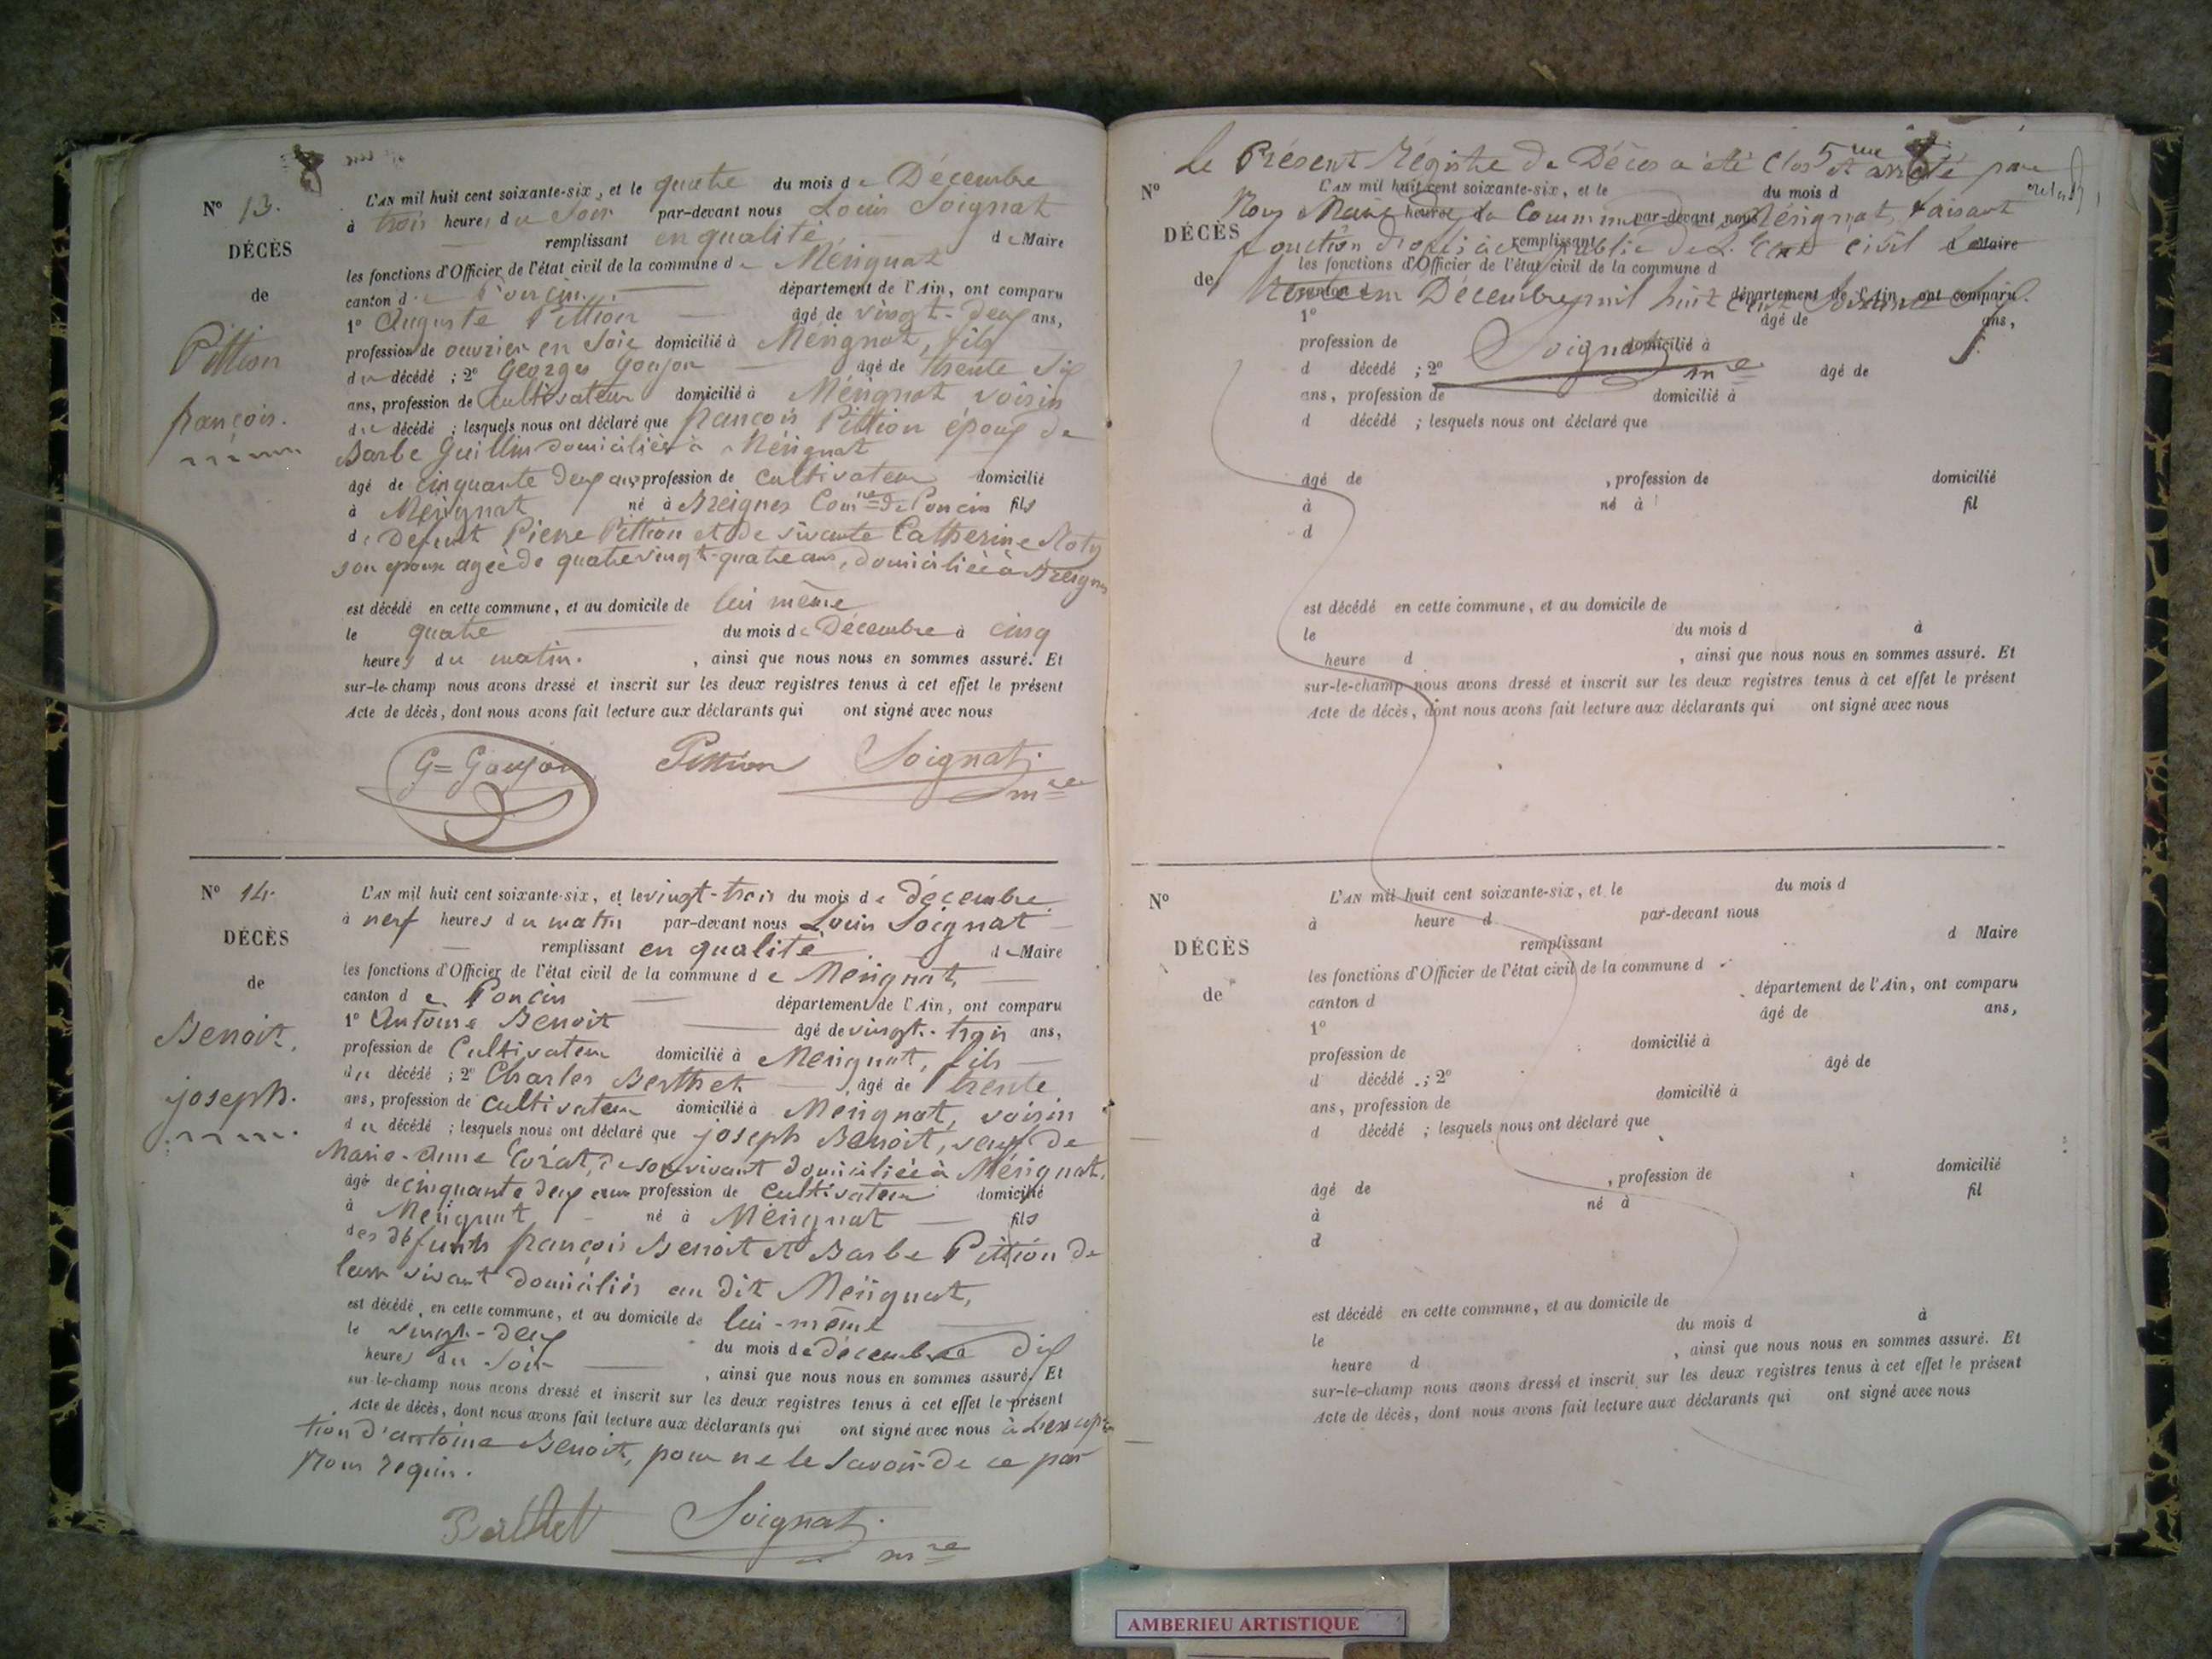 N° 13.
DÉCÈS
de
Pittion
françois.
L'AN mil huit cent soixante-six, et le quatre du mois de Décembre
à trois heures du Soir par-devant nous Louis Soignat
remplissant en qualité de Maire
les fonctions d'Officier de l'état civil de la commune de Mérignat
canton de Poncin département de l'Ain, ont comparu
1° Auguste Pittion âgé de vingt-deux ans,
profession de ouvrier en Soie domicilié à Mérignat, fils
du décédé ; 2° Georges Goujon âgé de trente Six
ans, profession de Cultivateur domicilié à Mérignat voisin
du décédé ; lesquels nous ont déclaré que françois Pittion époux de
Barbe Guillin domiciliée à Mérignat
âgé de cinquante deux ans profession de cultivateur domicilié
à Mérignat né à Breignes Comne de Poncin fils
de Defunt Pierre Pittion et de vivante Catherine
son epouse agée de quatrevingt-quatre ans, domiciliée à Breignes
est décédé en cette commune, et au domicile de lui même
le quatre du mois de Décembre à cinq
heures du matin. , ainsi que nous nous en sommes assuré. Et
sur-le-champ nous avons dressé et inscrit sur les deux registres tenus à cet effet le présent
Acte de décès, dont nous avons fait lecture aux déclarants qui ont signé avec nous
G= Goujon Pittion Soignat mre
N° 14.
DÉCÈS
de
Benoit,
joseph.
L'AN mil huit cent soixante-six, et le vingt-trois du mois de décembre
à nerf heures du matin par-devant nous Louis Soignat
remplissant en qualité de Maire
les fonctions d'Officier de l'état civil de la commune de Mérignat
canton de Poncin département de l'Ain, ont comparu
1° Antoine Benoit âgé de vingt-trois ans,
profession de Cultivateur domicilié à Mérignat, fils
du décédé ; 2° Charles Berthet âgé de trente
ans, profession de cultivateur domicilié à Mérignat, voisin
du décédé ; lesquels nous ont déclaré que joseph Benoit, veuf de
Marie-Anne de son vivant domiciliée à Mérignat,
âgé de cinquante deux ans profession de cultivateur domicilié
à Mérignat né à Mérignat fils
des défunts françois Benoit et Barbe Pittion de
leur vivant domiciliés au dit Mérignat,
est décédé en cette commune, et au domicile de lui-même
le vingt-deux du mois de décembre à dix
heures du Soir , ainsi que nous nous en sommes assuré. Et
sur-le-champ nous avons dressé et inscrit sur les deux registres tenus à cet effet le présent
Acte de décès, dont nous avons fait lecture aux déclarants qui ont signé avec nous à l'excep
tion d'antoine Benoit, pour ne le Savoir de ce par
Nous requis.
Berthet Soignat mre
Le Présent Régistre de Décès a été Clos et arrêté par
N°
L'AN mil huit cent soixante-six, et le du mois d
Nous Maire de la Commune de Mérignat, faisant
heure d par-devant nous
DÉCÈS
fonction d'officier public de l'Etat civil Le
remplissant d Maire
les fonctions d'Officier de l'état civil de la commune d
de
trente un Décembre mil huit cent Soixante Six.
canton d département de l'Ain, ont comparu
1° âgé de ans,
profession de domicilié à
Soignat mre
d décédé ; 2° âgé de
ans, profession de domicilié à
d décédé ; lesquels nous ont déclaré que
âgé de , profession de domicilié
à né à fil
d
est décédé en cette commune, et au domicile de
le du mois d à
heure d , ainsi que nous nous en sommes assuré. Et
sur-le-champ nous avons dressé et inscrit sur les deux registres tenus à cet effet le présent
Acte de décès, dont nous avons fait lecture aux déclarants qui ont signé avec nous
N°
DÉCÈS
de
L'AN mil huit cent soixante-six, et le du mois d
à heure d par-devant nous
remplissant d Maire
les fonctions d'Officier de l'état civil de la commune d
canton d département de l'Ain, ont comparu
1° âgé de ans,
profession de domicilié à
d décédé ; 2° âgé de
ans, profession de domicilié à
d décédé ; lesquels nous ont déclaré que
âgé de , profession de domicilié
à né à fil
d
est décédé en cette commune, et au domicile de
le du mois d à
heure d , ainsi que nous nous en sommes assuré. Et
sur-le-champ nous avons dressé et inscrit sur les deux registres tenus à cet effet le présent
Acte de décès, dont nous avons fait lecture aux déclarants qui ont signé avec nous
AMBERIEU ARTISTIQUE